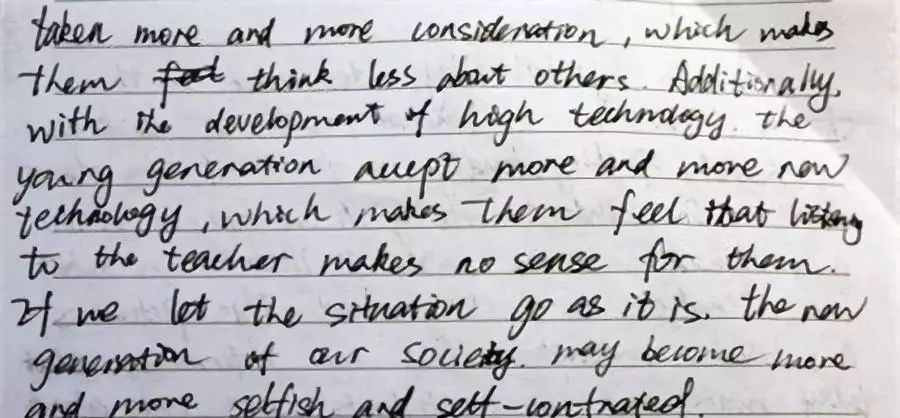 taken more and more consideration, which makes
them feel think less about others. Additionally,
with the development of high technology. the
young generation accept more and more new
technology, which makes them feel that listening
to the teacher makes no sense for them.
If we let the situation go as it is. the new
generation of our society. may become more
and more selfish and self-contrated.